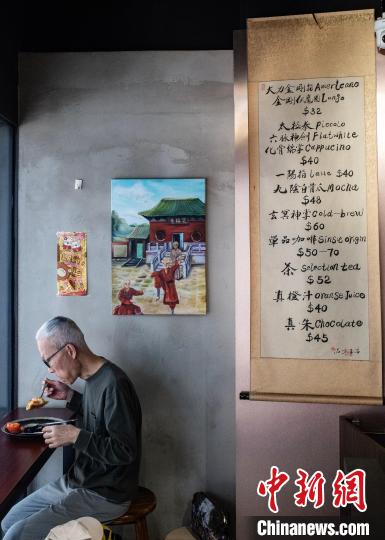 大力金剛指Americano
金剛伏魔圈Lungo
$32
太極拳Piccolo
六脈神劍Flatwhite
化骨綿掌Cappucino
$40
一陽指Latte $40
九陰白骨爪Mocha
$48
玄冥神掌Cold-brew
$60
單品咖啡Single origin
$50-70
茶Selection tea
$52
真橙汁orange Juice
$40
真朱Chocolate
$45
中新网
Chinanews.com